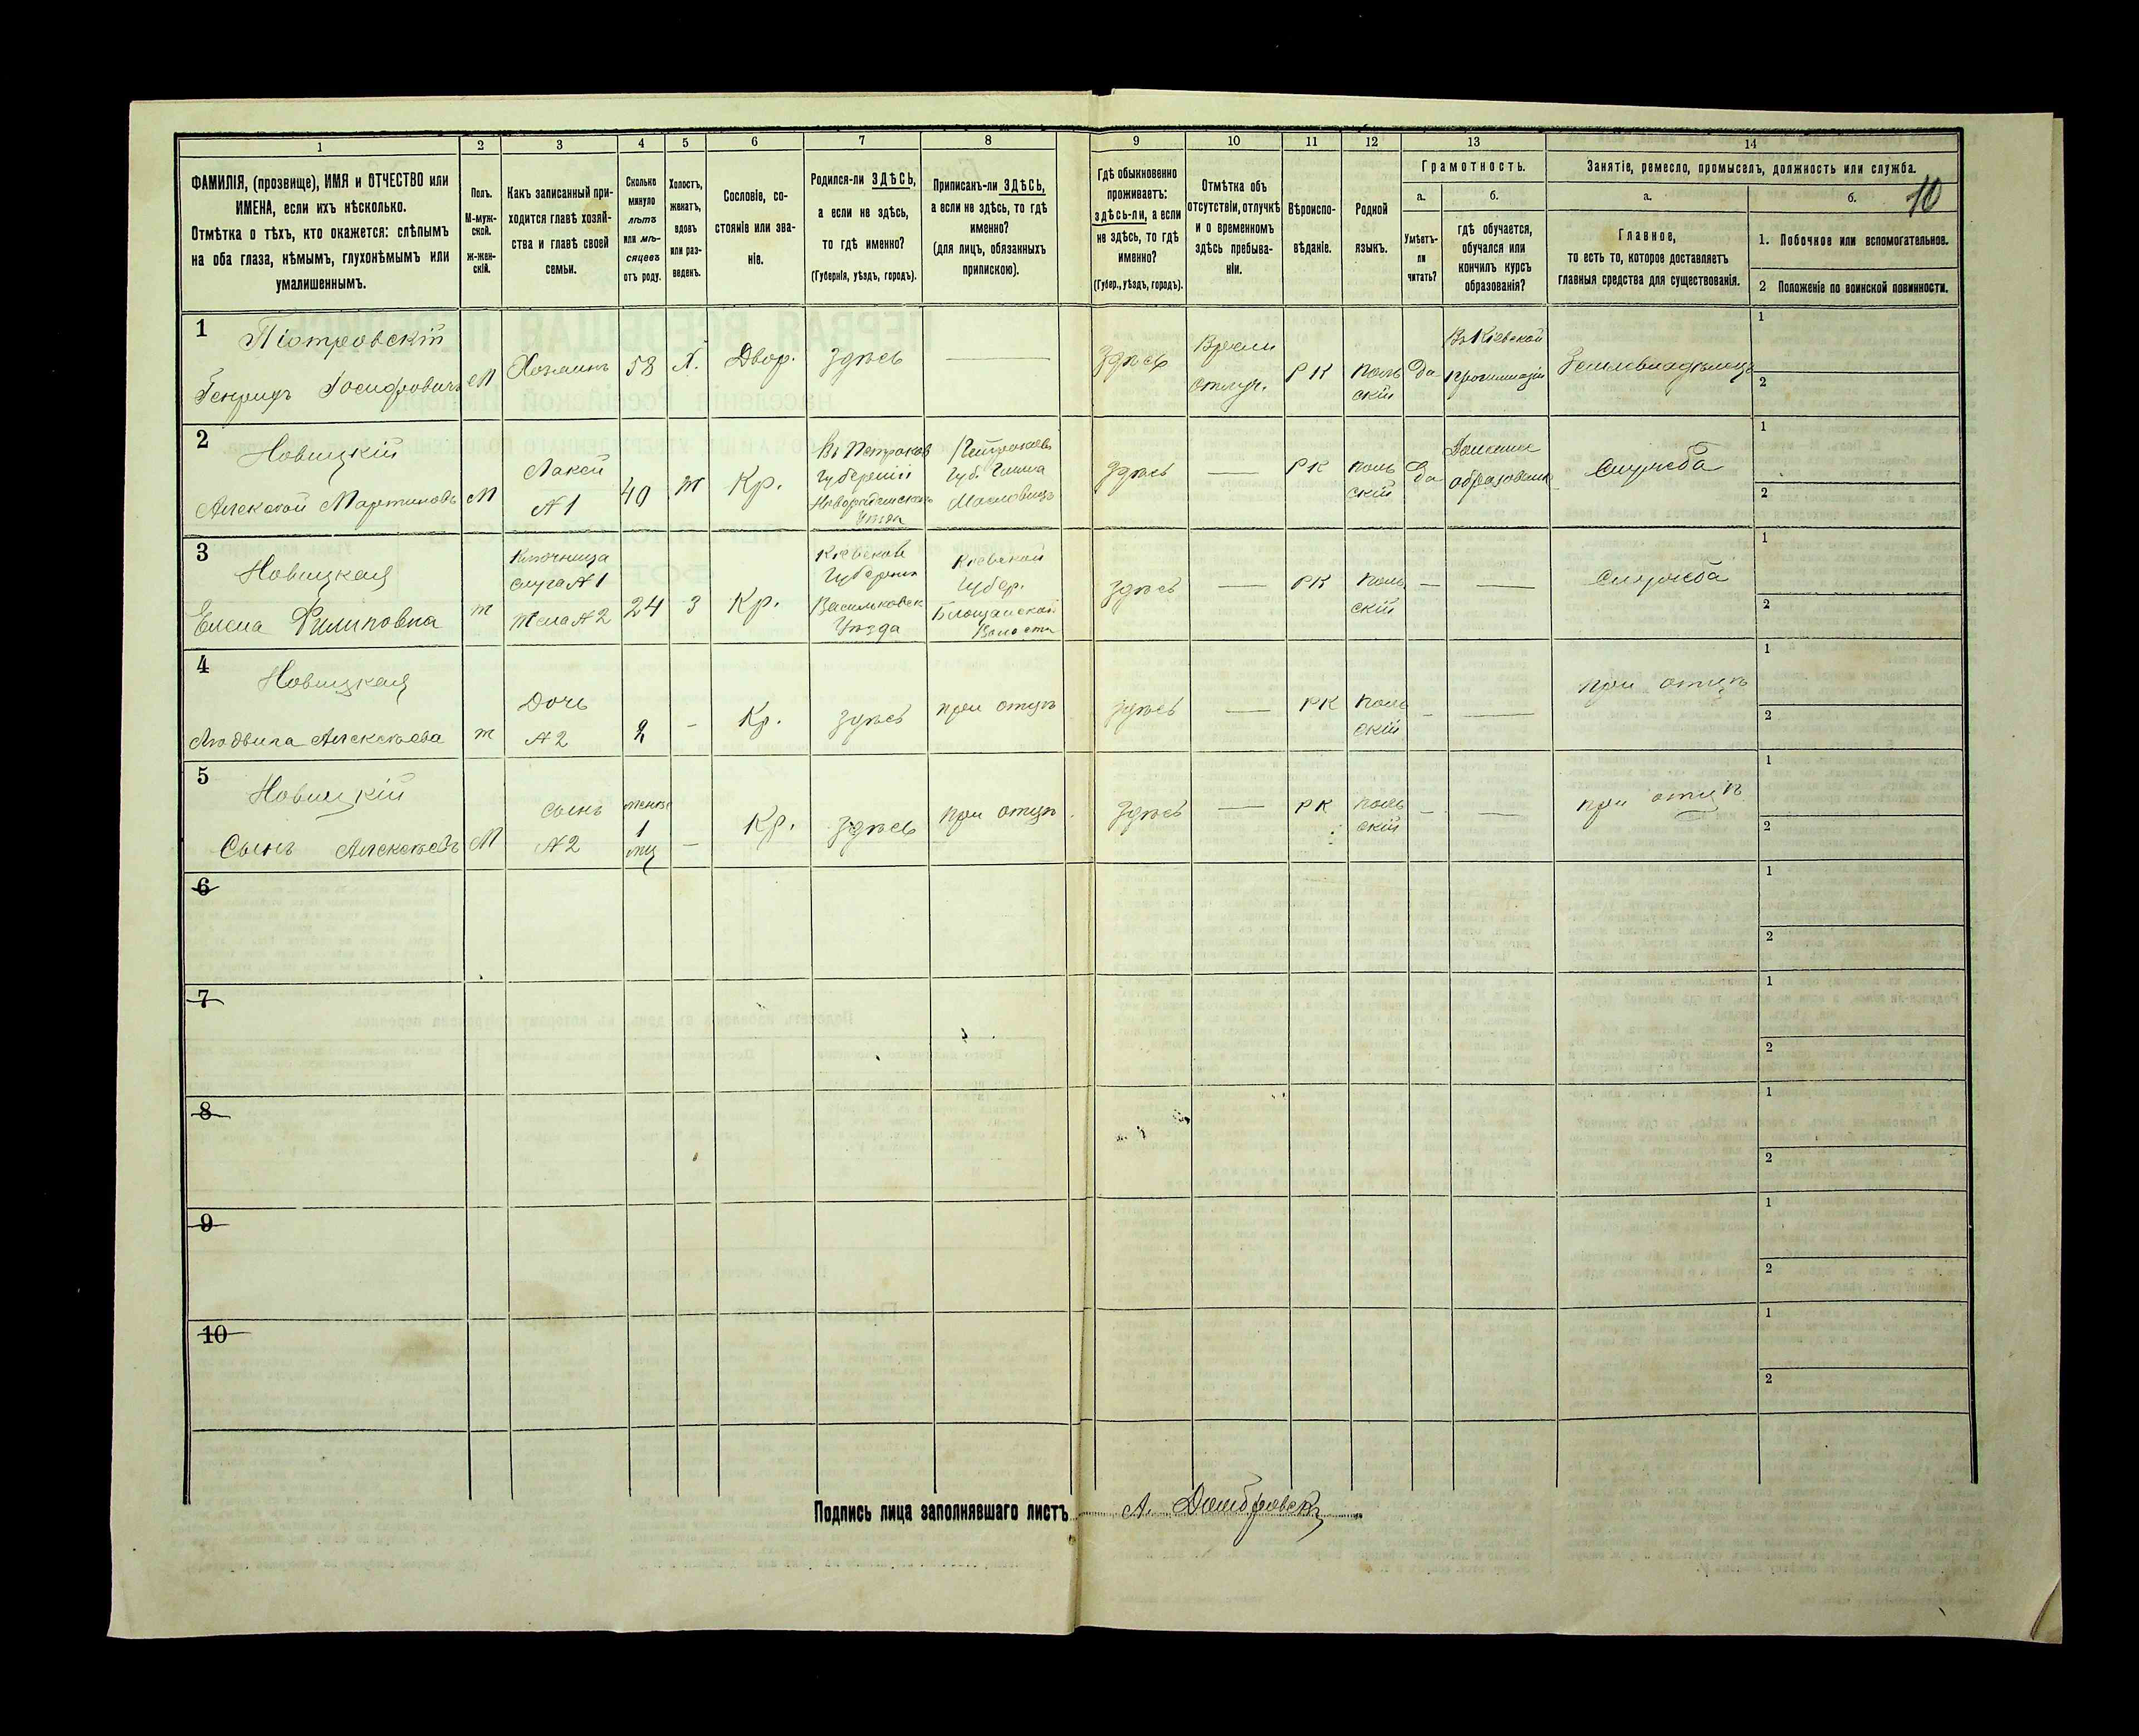 1 2 3 4 5 6 7 8 9 10 11 12 13 14
ФАМИЛІЯ, (прозвище), ИМЯ и ОТЧЕСТВО или
ИМЕНА, если ихъ нѣсколько.
Отмѣтка о тѣхъ, кто окажется: слѣпымъ
на оба глаза, нѣмымъ, глухонѣмымъ или
умалишеннымъ.
Полъ.
М-муж-
ской.
ж-жен-
скій.
Какъ записанный при-
ходится главѣ хозяй-
ства и главѣ своей
семьи.
Сколько
минуло
лѣтъ
или мѣ-
сяцевъ
отъ роду.
Холостъ,
женатъ,
вдовъ
или раз-
веденъ.
Сословіе, со-
стояніе или зва-
ніе.
Родился-ли ЗДѢСЬ,
а если не здѣсь,
то гдѣ именно?
(Губернія, уѣздъ, городъ).
Приписанъ-ли ЗДѢСЬ,
а если не здѣсь, то гдѣ
именно?
(для лицъ, обязанныхъ
припискою).
Гдѣ обыкновенно
проживаетъ:
здѣсь-ли, а если
не здѣсь, то гдѣ
именно?
(Губер., уѣздъ, городъ).
Отмѣтка объ
отсутствіи, отлучкѣ
и о временномъ
здѣсь пребыва-
ніи.
Вѣроиспо-
вѣданіе.
Родной
языкъ.
Грамотность.
а.
Умѣетъ-
ли
читать?
б.
гдѣ обучается,
обучался или
кончилъ курсъ
образованія?
Занятіе, ремесло, промыселъ, должность или служба.
а.
Главное,
то есть то, которое доставляетъ
главныя средства для существованія.
б.
10
1. Побочное или вспомогательное.
2 Положеніе по воинской повинности.
1
Піотровскій
Генрихъ Іосифовичъ
М
Хозяинъ
58
Х.
Двор.
здѣсь
здѣсь
Времен
отлуч.
РК
поль
скій
Да
Въ Кіевской
прогимназіи
Землевладѣлецъ
1
2
2
Новицкій
Алексѣй Мартиновъ
М
Лакей
№1
40
ж
Кр.
Въ Петроков
Губерніи
Уѣзд
Губ. Гмина
Масловицъ
здѣсь
РК
поль
скій
Да
Домашнее
образованіе
Служба
1
2
3
Новицкая
Елена Филиповна
ж
Ключница
слуга №1
Жена №2
24
З
Кр.
Кіевской
Губерніи
Васильковск
Уѣзда
Кіевской
Губер.
Волости
здѣсь
РК
поль
скій
Служба
1
2
4
Новицкая
Людвига Алексѣева
ж
Дочь
№2
2
Кр.
здѣсь
при отцѣ
здѣсь
РК
поль
скій
при отцѣ
1
2
5
Новицкій
Сынъ Алексѣевъ
М
сынъ
№2
менѣе
1
мц
Кр.
здѣсь
при отцѣ
здѣсь
РК
поль
скій
при отцѣ
1
2
6
1
2
7
1
2
8
1
2
9
1
2
10
1
2
Подпись лица заполнявшаго листъ А. Домбровскі